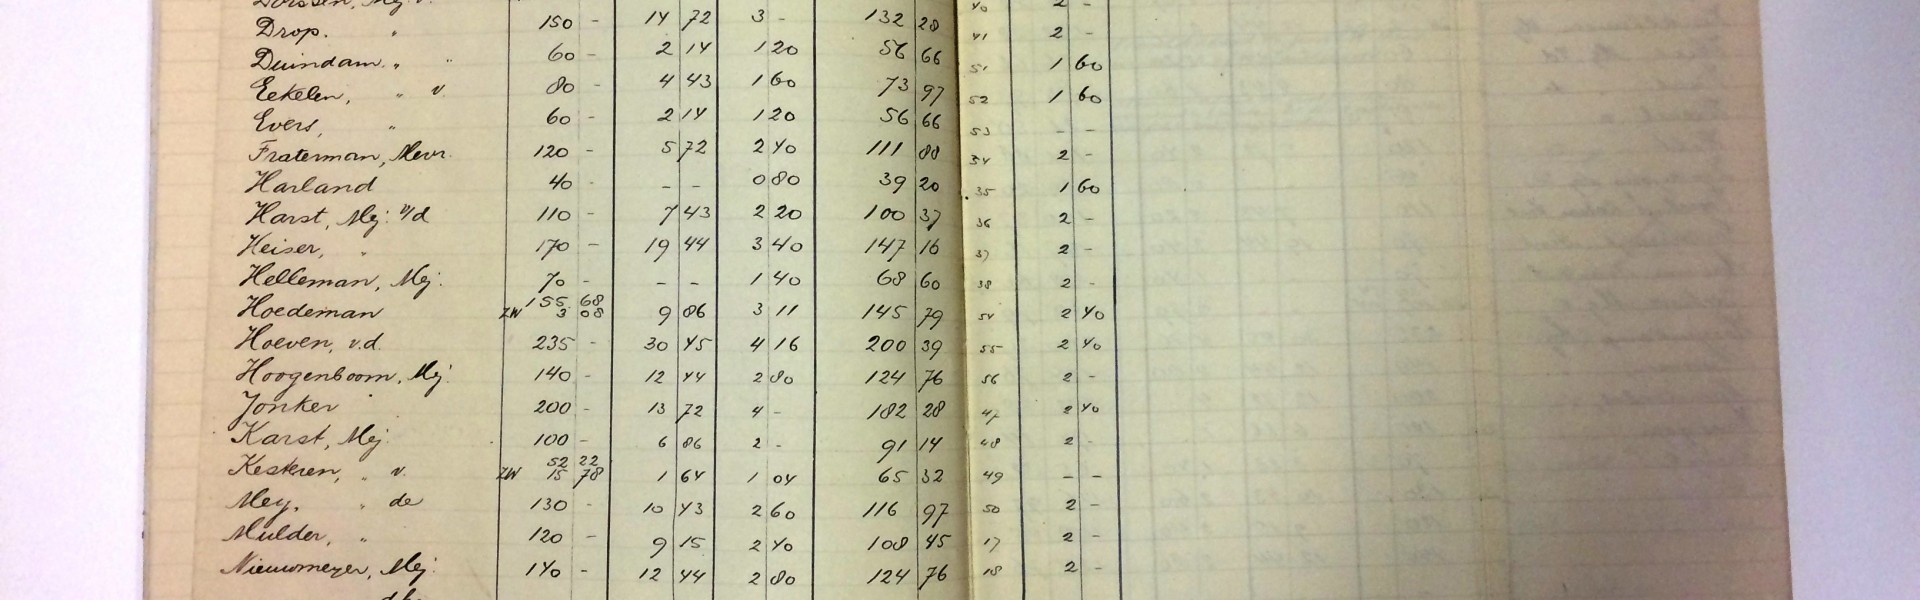 Drop. " 150 - 14 72 3 - 132 28 41 2 -
Duindam, " " 60 - 2 14 1 20 56 66 51 1 60
Eekelen, " v. 80 - 4 43 1 60 73 97 52 1 60
Evers, " 60 - 2 14 1 20 56 66 53 - -
Fraterman, Mevr. 120 - 5 72 2 40 111 88 34 2 -
Harland 40 - - - 0 80 39 20 35 1 60
Harst, Mej: v/d 110 - 7 43 2 20 100 37 36 2 -
Heiser, " 170 - 19 44 3 40 147 16 37 2 -
Helleman, Mej. 70 - - - 1 40 68 60 38 2 -
Hoedeman ZW 155 68 3 08 9 86 3 11 145 79 54 2 40
Hoeven, v.d. 235 - 30 45 4 16 200 39 55 2 40
Hoogenboom, Mej. 140 - 12 44 2 80 124 76 56 2 -
Jonker 200 - 13 72 4 - 182 28 47 2 40
Karst, Mej. 100 - 6 86 2 - 91 14 48 2 -
Kesteren, " v. ZW 52 22 15 78 1 64 1 04 65 32 49 - -
Mey, " de 130 - 10 43 2 60 116 97 50 2 -
Mulder, " 120 - 9 15 2 40 108 45 17 2 -
Nieuwmeyer, Mej. 140 - 12 44 2 80 124 76 18 2 -